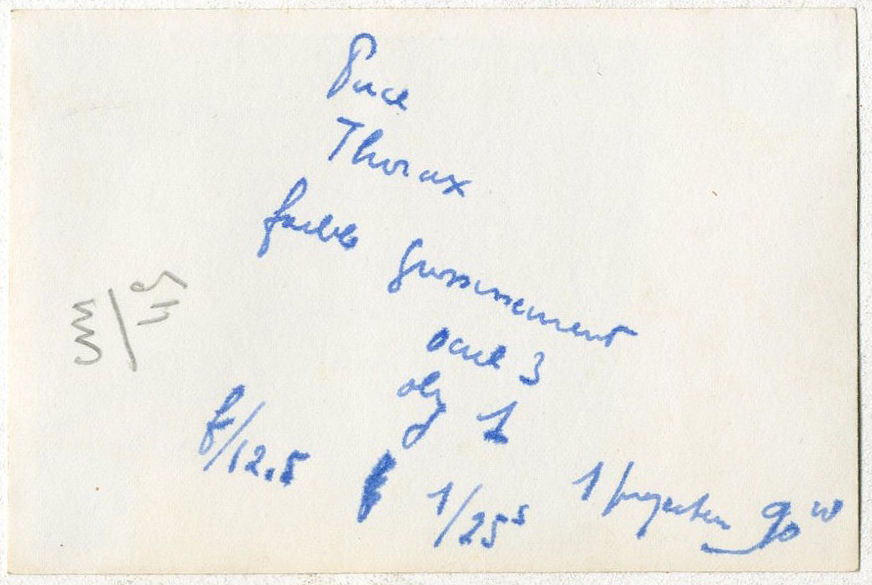 Puce
Thorax
faible grossissement
ocul 3
obj 1
f/12.5 1/25s 1 projecteur 90 w